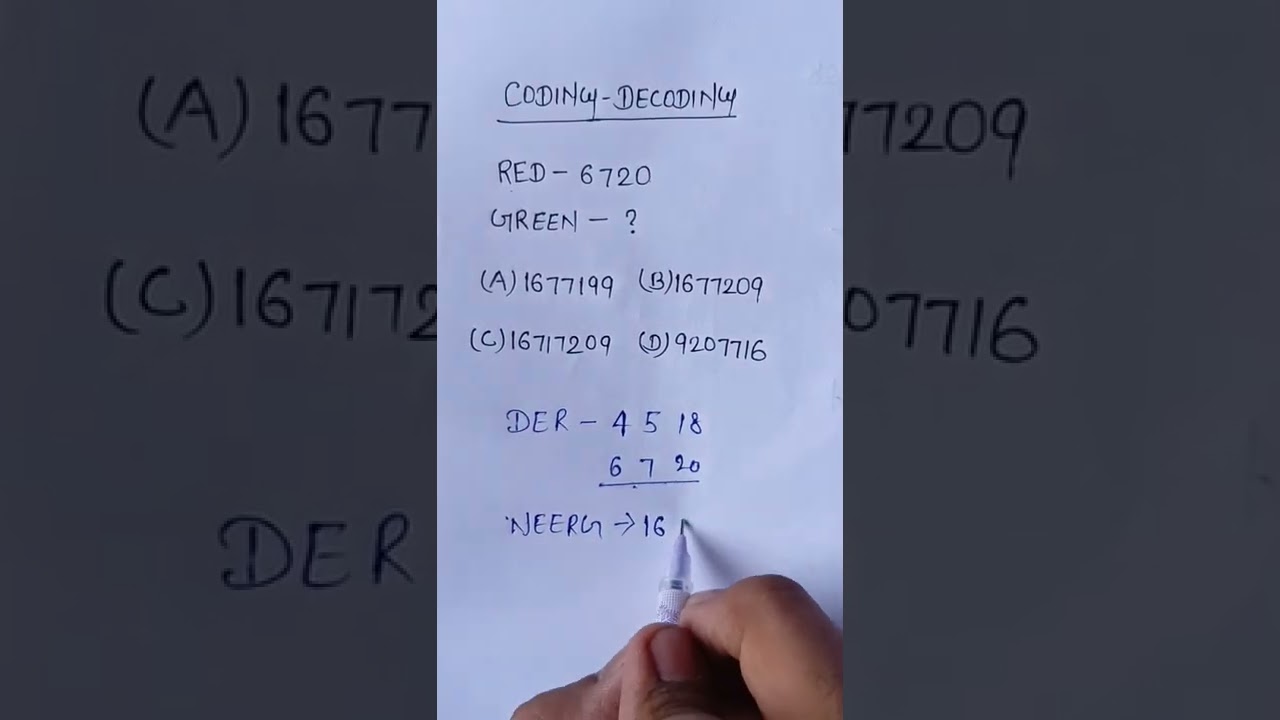 CODING-DECODING
RED - 6720
GREEN - ?
(A) 1677199 (B) 1677209
(C) 16717209 (D) 9207716
DER - 4 5 18
6 7 20
NEERG → 16